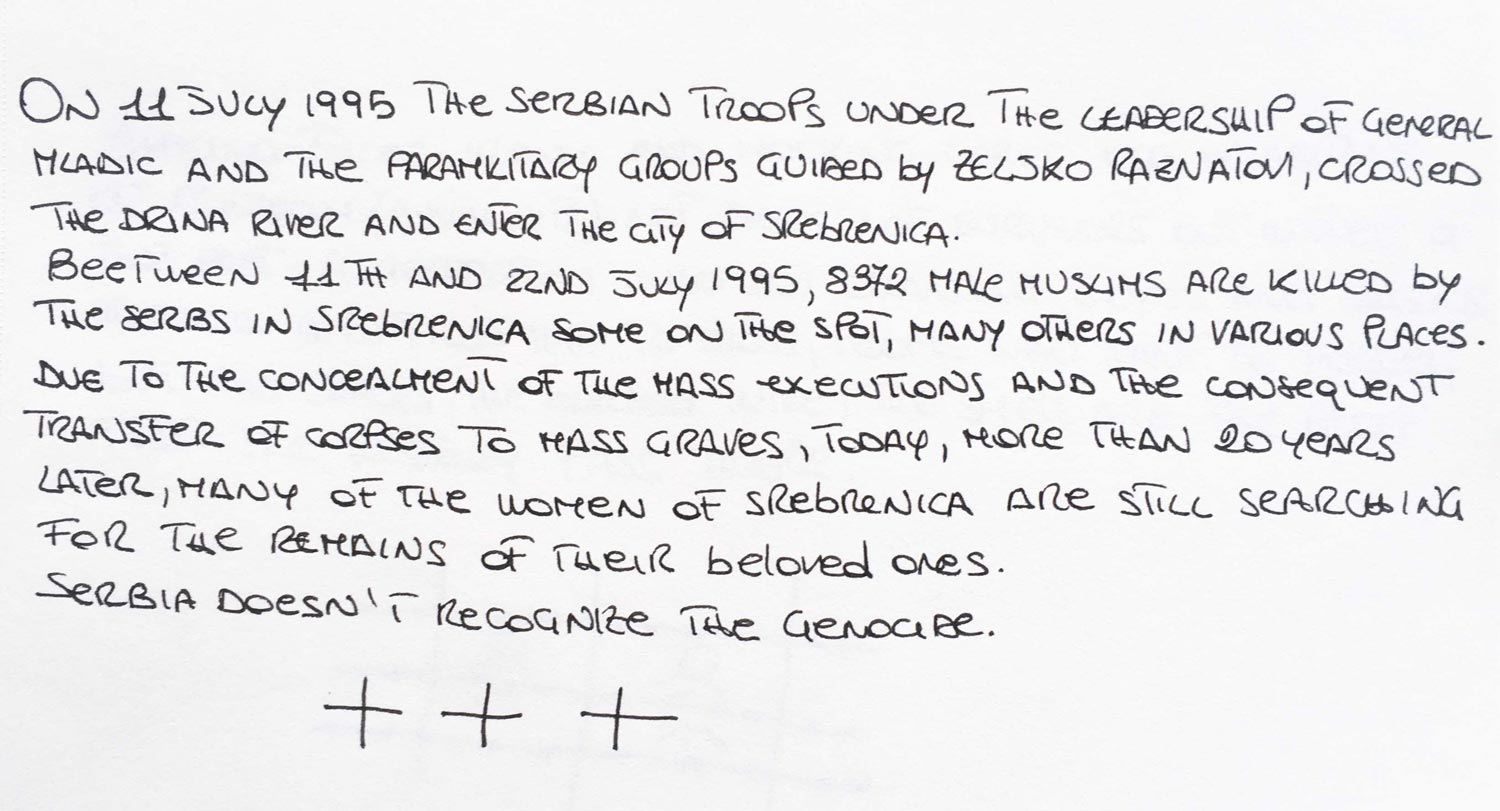 ON 11 JULY 1995 THE SERBIAN TROOPS UNDER THE LEADERSHIP OF GENERAL
MLADIC AND THE PARAMILITARY GROUPS GUIDED by ZELJSKO RAZNATOVI, CROSSED
THE DRINA RIVER AND ENTER THE CITY OF SREBRENICA.
BEETWEEN 11TH AND 22ND JULY 1995, 8372 MALE MUSLIMS ARE KILLED by
THE SERBS IN SREBRENICA SOME ON THE SPOT, MANY OTHERS IN VARIOUS PLACES.
DUE TO THE CONCEALMENT OF THE MASS EXECUTIONS AND THE CONSEQUENT
TRANSFER OF CORPSES TO MASS GRAVES, TODAY, MORE THAN 20 YEARS
LATER, MANY OF THE WOMEN OF SREBRENICA ARE STILL SEARCHING
FOR THE REMAINS OF THEIR beloved ones.
SERBIA DOESN'T RECOGNIZE THE GENOCIDE.
+ + +